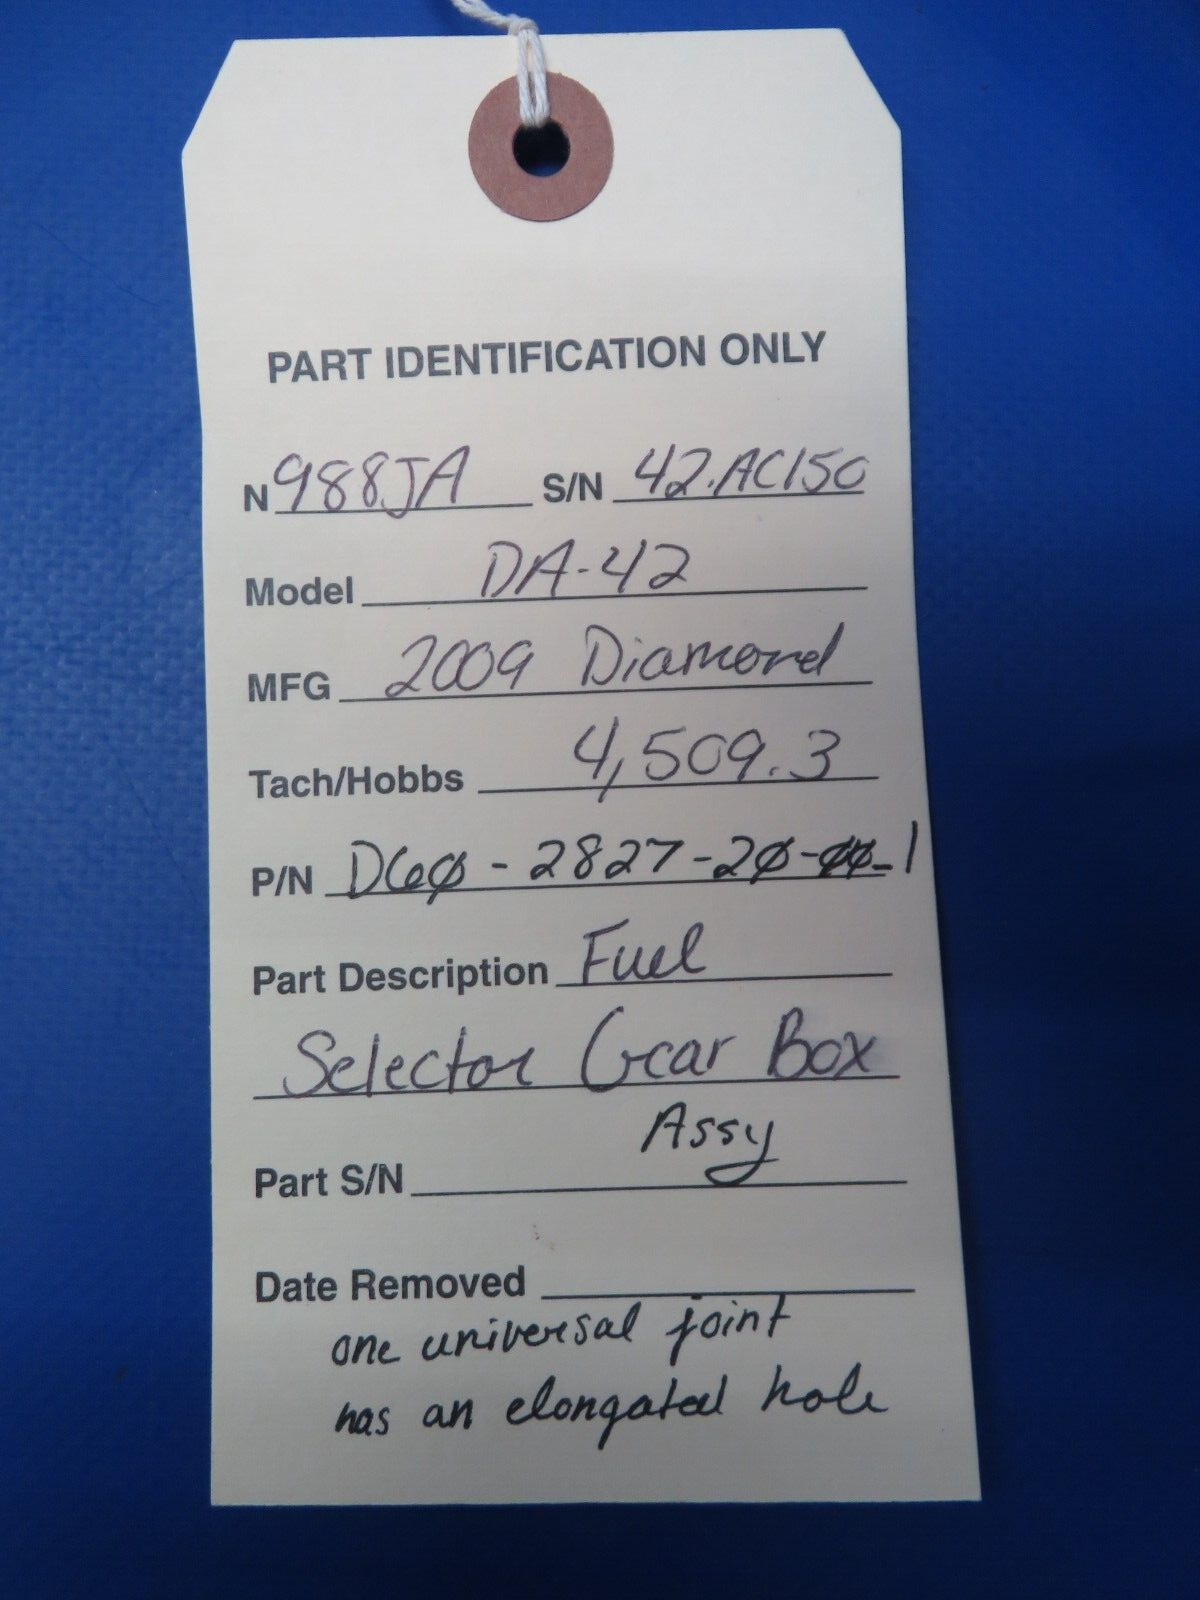 PART IDENTIFICATION ONLY
N 988JA S/N 42.AC150
Model DA-42
MFG 2009 Diamond
Tach/Hobbs 4,509.3
P/N D60-2827-20-00-1
Part Description Fuel
Selector Gear Box
Assy
Part S/N
Date Removed
one universal joint
has an elongated hole